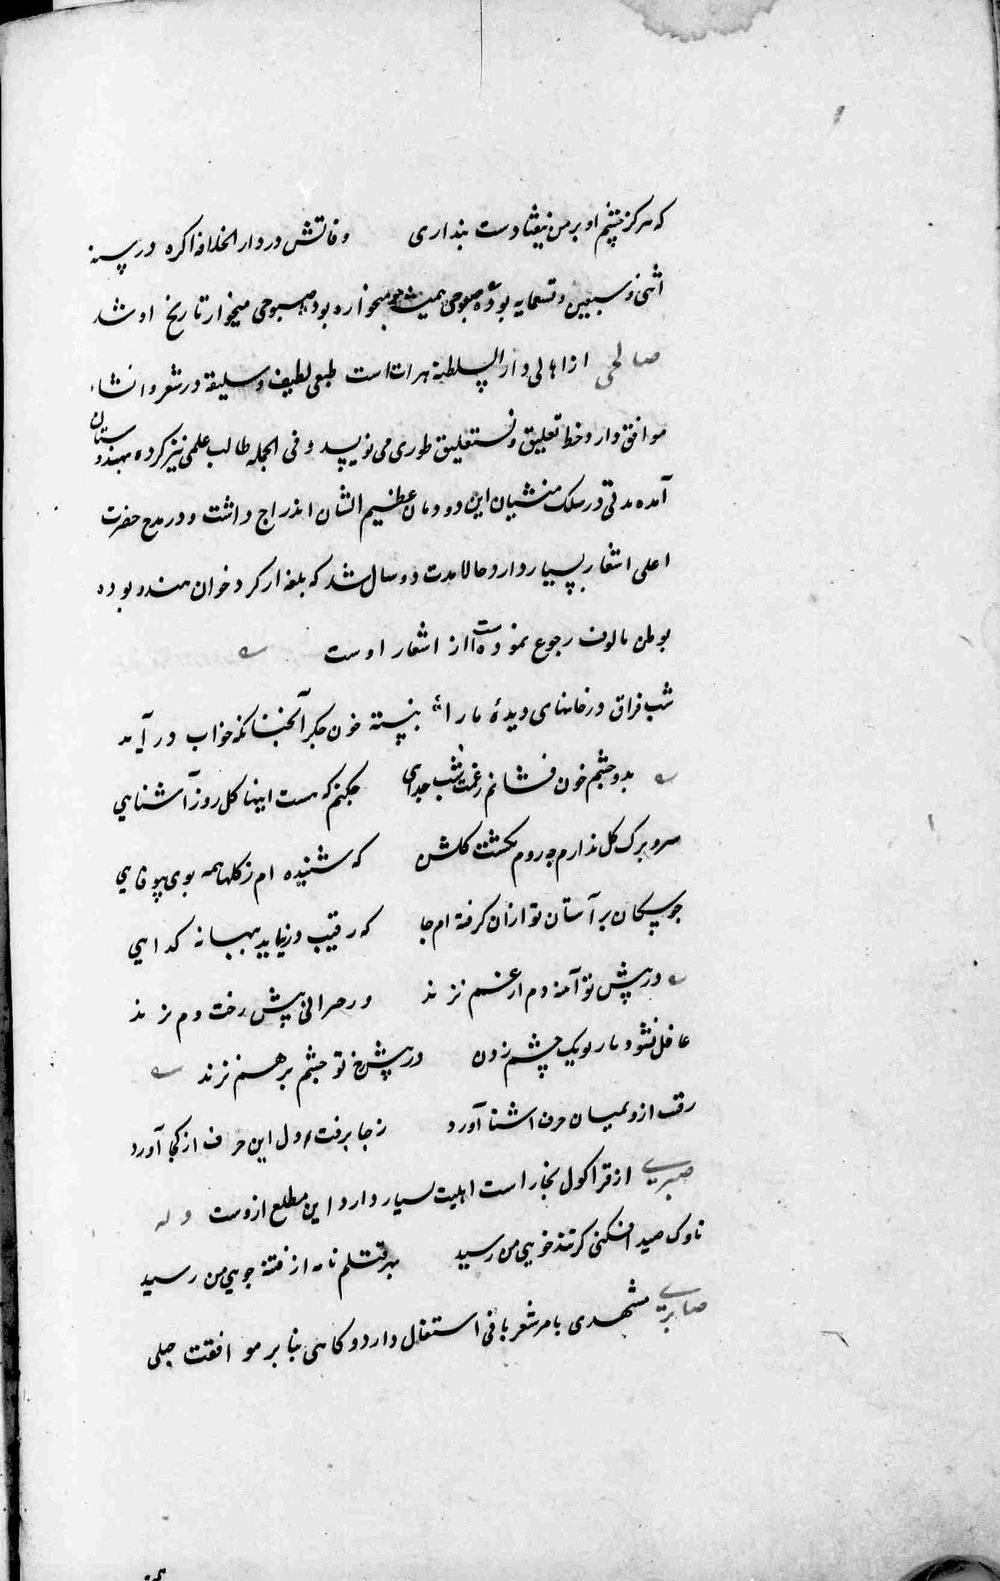 که هرکز چشم او بر من نیفتادست پنداری وفاتش در دار الخلافه اکره در سنه
اثنی و سبعین و تسعمایه بوده صبوحی همیشه میخواره بود صبوحی میخوار تاریخ او شد
صالحی از اهالی دار السلطنه هرات است طبعی لطیف و سلیقه در شعر و انشاء
موافق دارد و خط تعلیق و نستعلیق طوری می نویسد و فی الجمله طالب علمی نیز کرده بهندوستان
آمده مدتی در سلک منشیان این دودمان عظیم الشان اندراج داشت و در مدح حضرت
اعلی اشعار بسیار دارد حالا مدت دو سال شد که بلغار کرد خوان هند بوده
بوطن مالوف رجوع نموده است از اشعار اوست
شب فراق در خانهای دیده ما را نبسته خون جکر آنچنانکه خواب در آید
بدو چشم خون فشانم ز غمت شب جدایی چکنم که هست اینها کل روز آشنایی
سر و برک کل ندارم چه روم بکشت کلشن که شنیده ام ز کلها همه بوی بیوفایی
جو سکان بر آستان تو از ان کرفته ام جا که رقیب در نیاید ببهانه کدایی
در پیش تو آمنه دم از غم نزند ور صرانی پیش رخت دم نزند
غافل نشود مار تو یک چشم زدن در پیش رخ تو چشم بر هم نزند
رقیب از و بمیان حرف اشنا آورد ز جا برفت دل این حرف از کجا آورد
صبری از قراکول بخارا است اهلیت بسیار دارد این مطلع ازوست وله
ناوک صید افکنی کز تند خویی من رسید بهر قتلم نامه از فتنه جویی من رسید
صابری مشهدی بامر شعر بافی اشتغال دارد و کاهی بنا بر موافقت جبلی